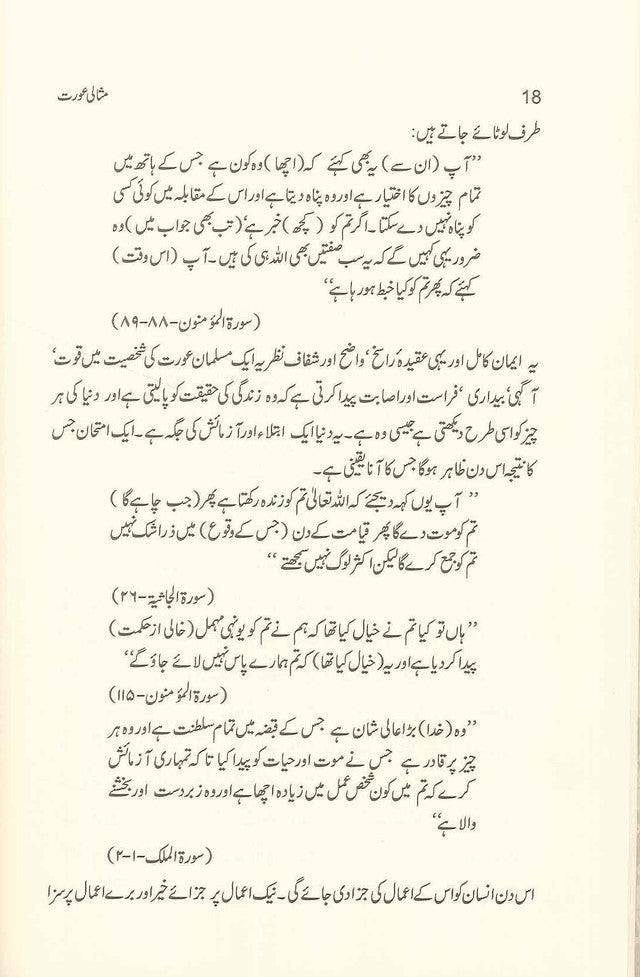 18 مثالی عورت
طرف لوٹائے جاتے ہیں:
’’آپ (ان سے) یہ بھی کہئے کہ (اچھا) وہ کون ہے جس کے ہاتھ میں
تمام چیزوں کا اختیار ہے اور وہ پناہ دیتا ہے اور اس کے مقابلہ میں کوئی کسی
کو پناہ نہیں دے سکتا۔ اگر تم کو (کچھ) خبر ہے‘ (تب بھی جواب میں) وہ
ضرور یہی کہیں گے کہ یہ سب صفتیں بھی اللہ ہی کی ہیں۔ آپ (اس وقت)
کہئے کہ پھر تم کو کیا خبط ہو رہا ہے‘‘
(سورۃ المؤمنون-۸۸-۸۹)
یہ ایمان کامل اور یہی عقیدۂ راسخ‘ واضح اور شفاف نظریہ ایک مسلمان عورت کی شخصیت میں قوت‘
آگہی‘ بیداری‘ فراست اور اصابت پیدا کرتی ہے کہ وہ زندگی کی حقیقت کو پالیتی ہے اور دنیا کی ہر
چیز کو اسی طرح دیکھتی ہے جیسی وہ ہے۔ یہ دنیا ایک ابتلاء اور آزمائش کی جگہ ہے۔ ایک امتحان جس
کا نتیجہ اس دن ظاہر ہوگا جس کا آنا یقینی ہے۔
’’آپ یوں کہہ دیجئے کہ اللہ تعالیٰ تم کو زندہ رکھتا ہے پھر (جب چاہے گا)
تم کو موت دے گا پھر قیامت کے دن (جس کے وقوع) میں ذرا شک نہیں
تم کو جمع کرے گا لیکن اکثر لوگ نہیں سمجھتے‘‘
(سورۃ الجاثیۃ-۲۶)
’’ہاں تو کیا تم نے خیال کیا تھا کہ ہم نے تم کو یونہی مہمل (خالی از حکمت)
پیدا کر دیا ہے اور یہ (خیال کیا تھا) کہ تم ہمارے پاس نہیں لائے جاؤ گے‘‘
(سورۃ المؤمنون-۱۱۵)
’’وہ (خدا) بڑا عالی شان ہے جس کے قبضہ میں تمام سلطنت ہے اور وہ ہر
چیز پر قادر ہے جس نے موت اور حیات کو پیدا کیا تاکہ تمہاری آزمائش
کرے کہ تم میں کون شخص عمل میں زیادہ اچھا ہے اور وہ زبردست اور بخشنے
والا ہے‘‘
(سورۃ الملک-۱-۲)
اس دن انسان کو اس کے اعمال کی جزا دی جائے گی۔ نیک اعمال پر جزائے خیر اور برے اعمال پر سزا